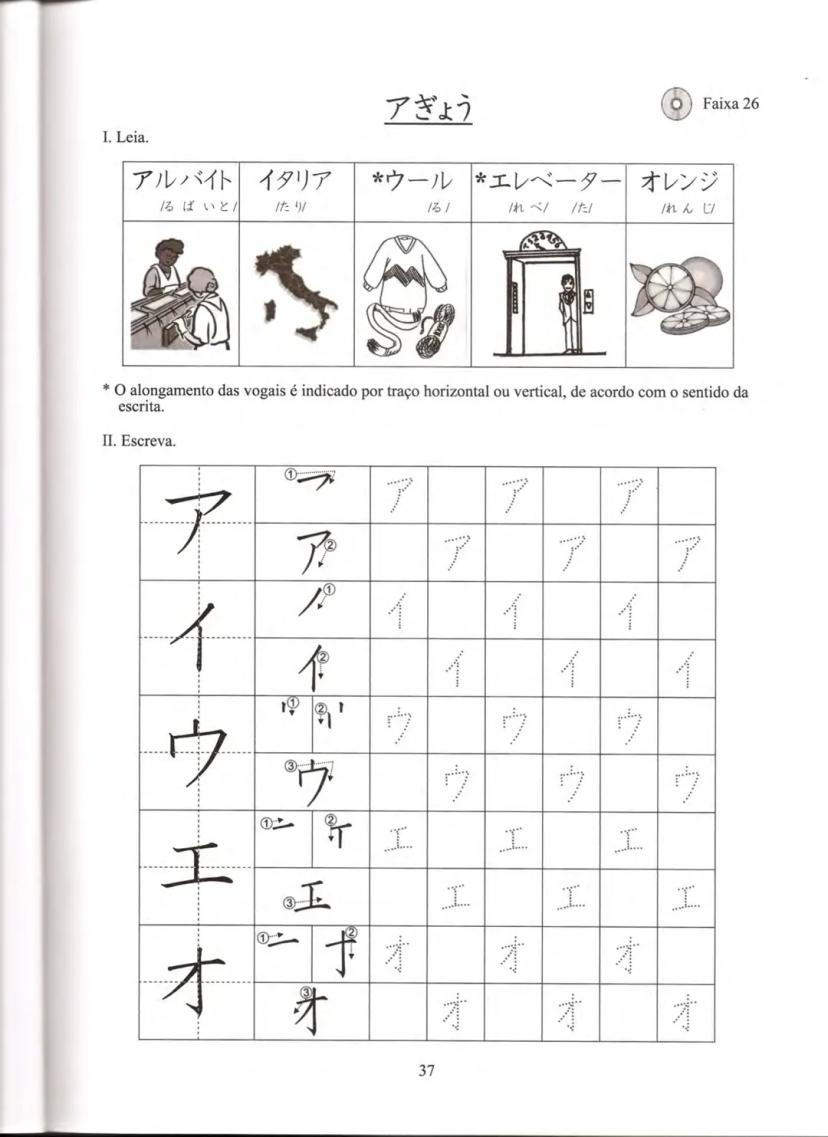 アぎょう
Faixa 26
I. Leia.
アルバイト イタリア *ウール *エレベーター オレンジ
/る ば い と/ /た り/ /る/ /れ べ/ /た/ /れ ん じ/
* O alongamento das vogais é indicado por traço horizontal ou vertical, de acordo com o sentido da
escrita.
II. Escreva.
ア ① ア ア ア
ア ② ア ア ア
イ ① イ イ イ
イ ② イ イ イ
ウ ① ② ウ ウ ウ
ウ ③ ウ ウ ウ
エ ① ② エ エ エ
エ ③ エ エ エ
オ ① ② オ オ オ
オ ③ オ オ オ
37